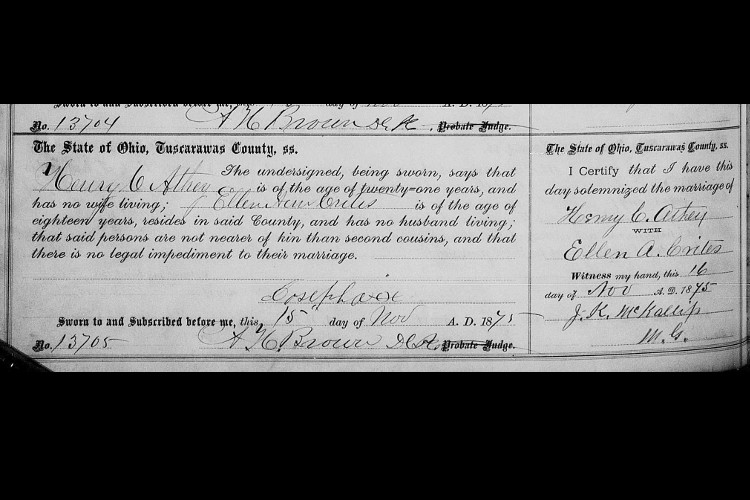 Sworn to and Subscribed before me, this day of Nov A. D. 187
No. 13704 A H Brown Probate Judge.
The State of Ohio, Tuscarawas County, ss.
The undersigned, being sworn, says that
Henry C Athey is of the age of twenty-one years, and
has no wife living; Ellen Ann Crites is of the age of
eighteen years, resides in said County, and has no husband living;
that said persons are not nearer of kin than second cousins, and that
there is no legal impediment to their marriage.
Joseph
Sworn to and Subscribed before me, this 15 day of Nov A. D. 1875
No. 13705 A H Brown Probate Judge.
The State of Ohio, Tuscarawas County, ss.
I Certify that I have this
day solemnized the marriage of
Henry C. Athey
WITH
Ellen A. Crites
Witness my hand, this 16
day of Nov A. D. 1875
J. K. McKallip
M. G.